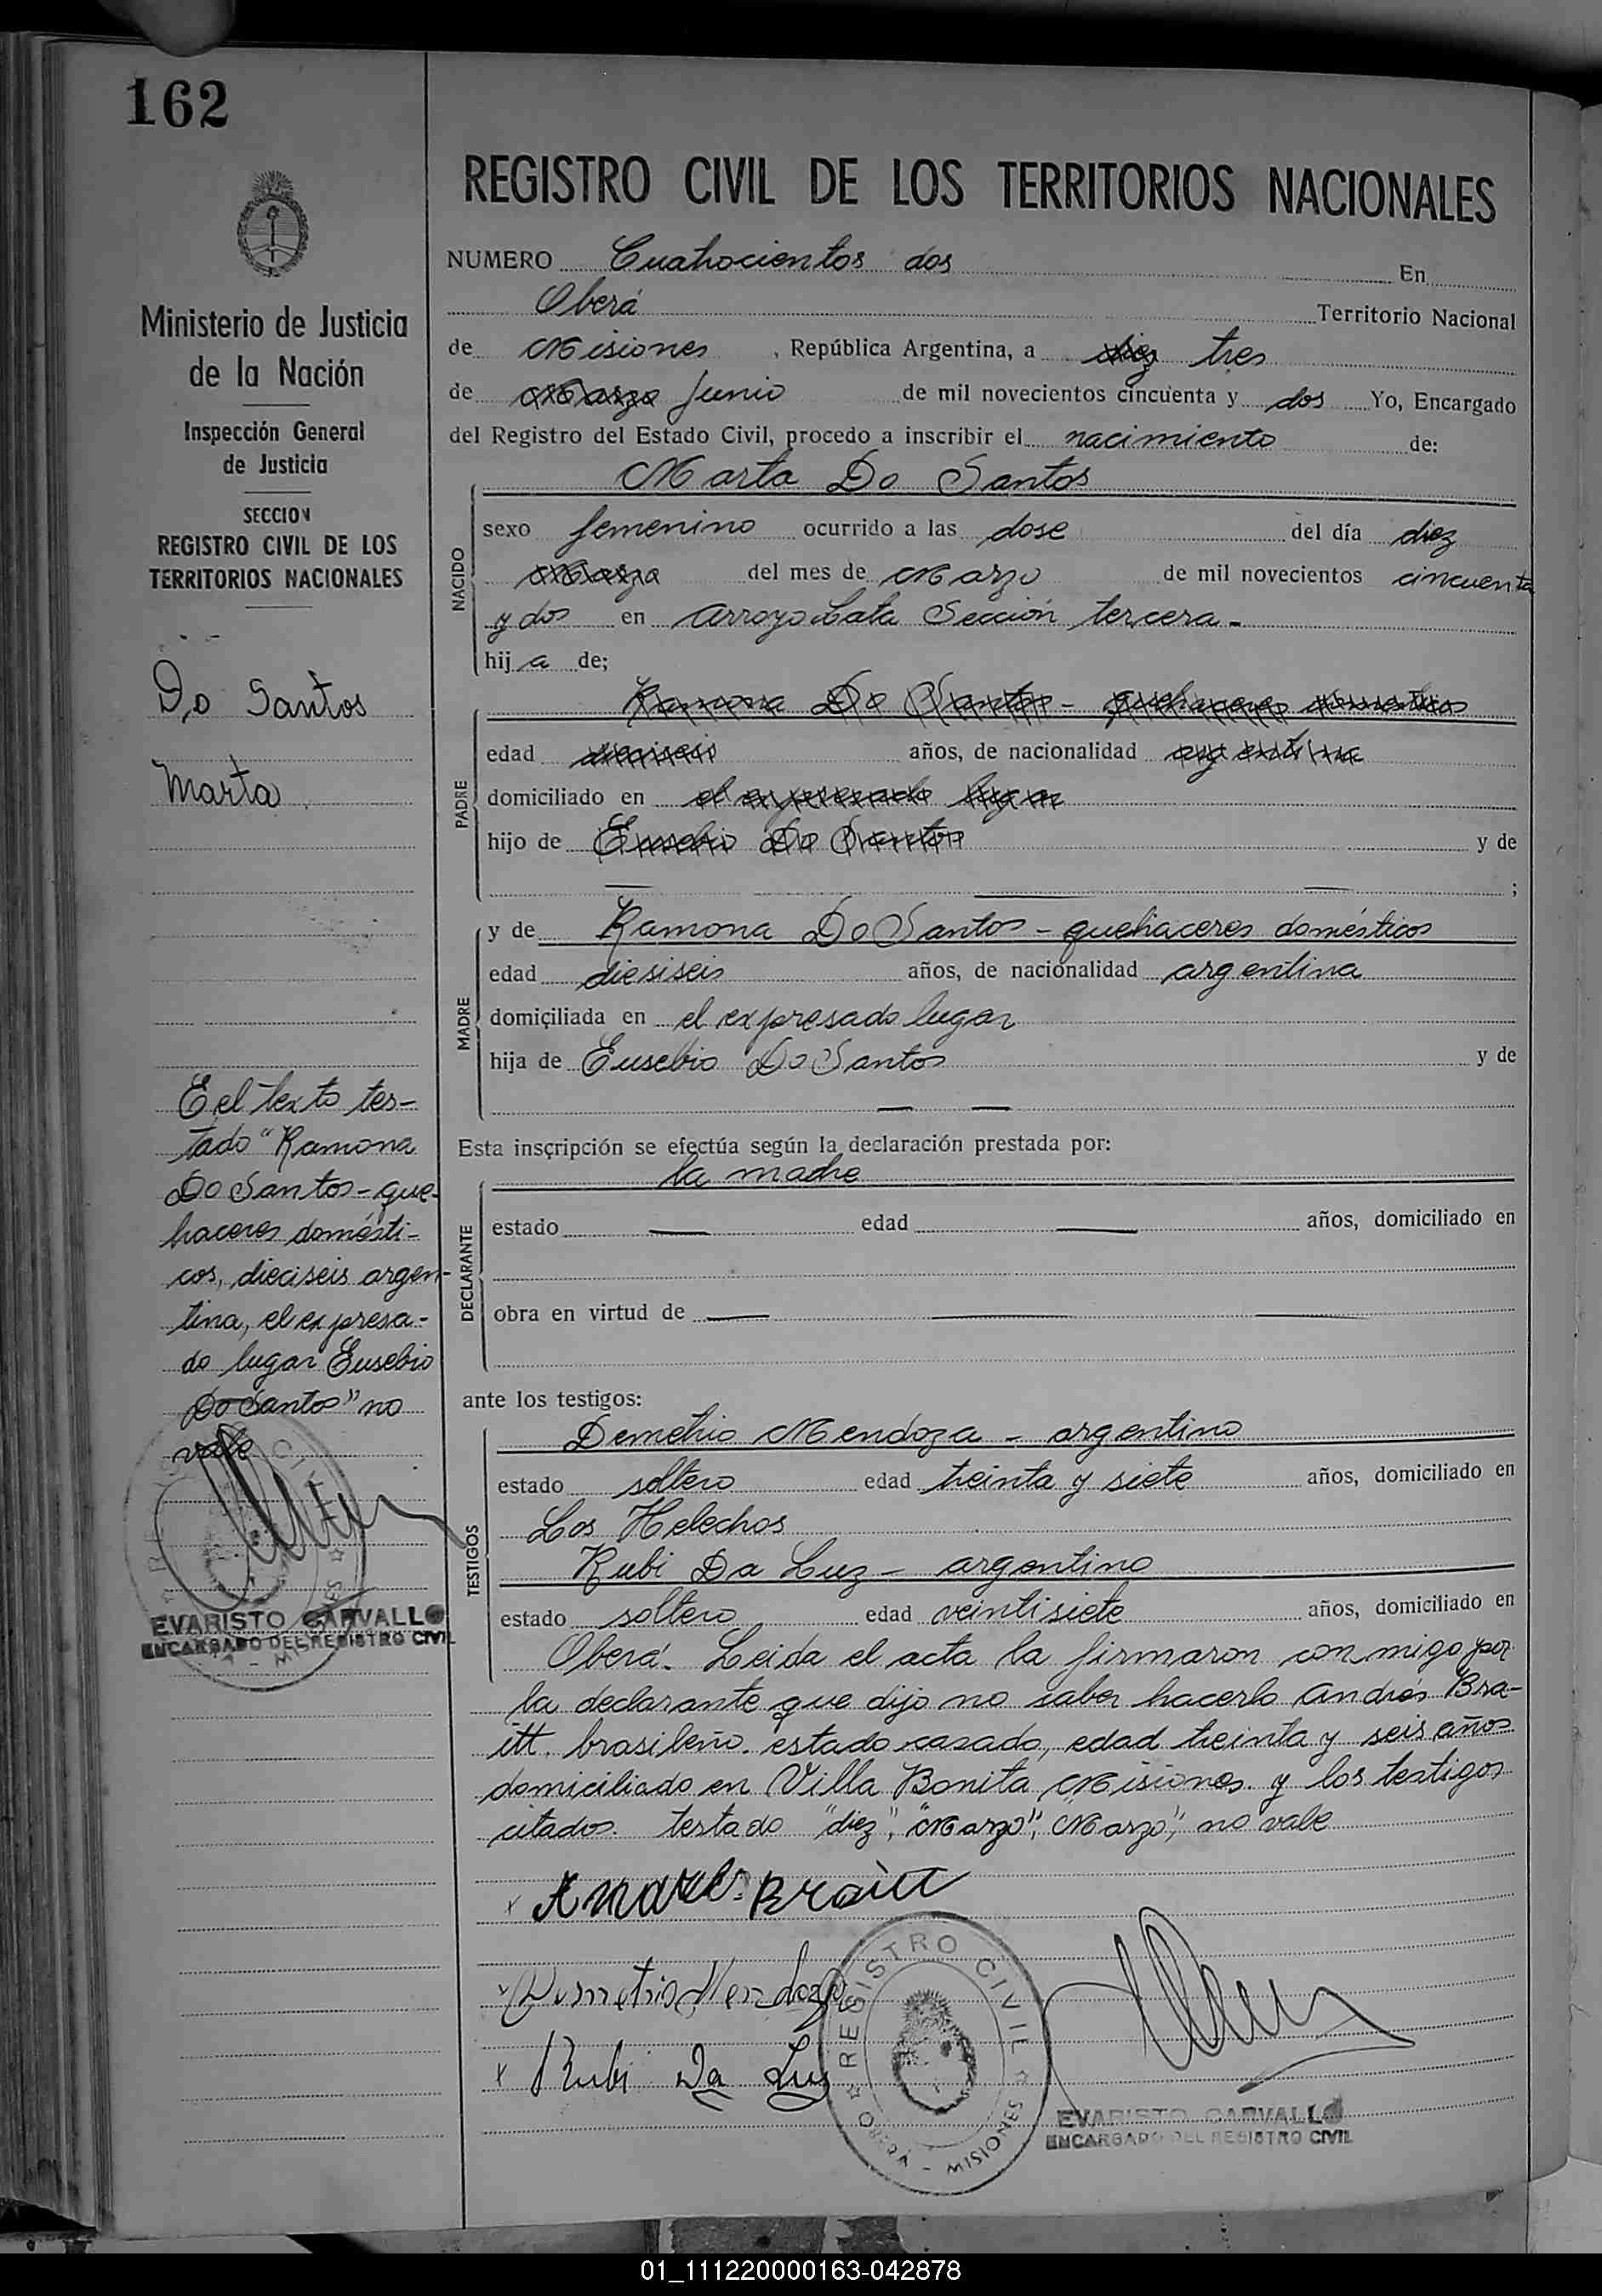 162
Ministerio de Justicia
de la Nación
Inspección General
de Justicia
SECCION
REGISTRO CIVIL DE LOS
TERRITORIOS NACIONALES
Do Santos
Marta
E el texto tes-
tado "Ramona
Do Santos - que-
haceres domésti-
cos, dieciseis argen-
tina, el expresa-
do lugar Eusebio
Do Santos" no
vale
EVARISTO CARVALLO
ENCARGADO DEL REGISTRO CIVIL
REGISTRO CIVIL DE LOS TERRITORIOS NACIONALES
NUMERO Cuatrocientos dos En
Oberá Territorio Nacional
de Misiones , República Argentina, a diez tres
de Marzo Junio de mil novecientos cincuenta y dos Yo, Encargado
del Registro del Estado Civil, procedo a inscribir el nacimiento de:
Marta Do Santos
NACIDO
sexo femenino ocurrido a las dose del día diez
Marzo del mes de Marzo de mil novecientos cincuenta
y dos en Arroyo Bata Sección tercera -
hij a de;
PADRE
Ramona Do Santos - quehaceres domésticos
edad dieciseis años, de nacionalidad argentina
domiciliado en el expresado lugar
hijo de Eusebio Do Santos y de
;
MADRE
y de Ramona Do Santos - quehaceres domésticos
edad diesiseis años, de nacionalidad argentina
domiciliada en el expresado lugar
hija de Eusebio Do Santos y de
Esta inscripción se efectúa según la declaración prestada por:
la madre
DECLARANTE
estado edad años, domiciliado en
obra en virtud de
ante los testigos:
TESTIGOS
Demetrio Mendoza - argentino
estado soltero edad treinta y siete años, domiciliado en
Los Helechos
Rubi Da Luz - argentino
estado soltero edad veintisiete años, domiciliado en
Oberá. Leida el acta la firmaron con migo por
la declarante que dijo no saber hacerlo Andrés Bra-
itt, brasileño, estado casado, edad treinta y seis años
domiciliado en Villa Bonita Misiones y los testigos
citados. testado "diez", "Marzo", "Marzo", no vale
x Andres Braitt
Demetrio Mendoza
x Rubi Da Luz
REGISTRO CIVIL
OBERÁ - MISIONES
EVARISTO CARVALLO
ENCARGADO DEL REGISTRO CIVIL
01_111220000163-042878